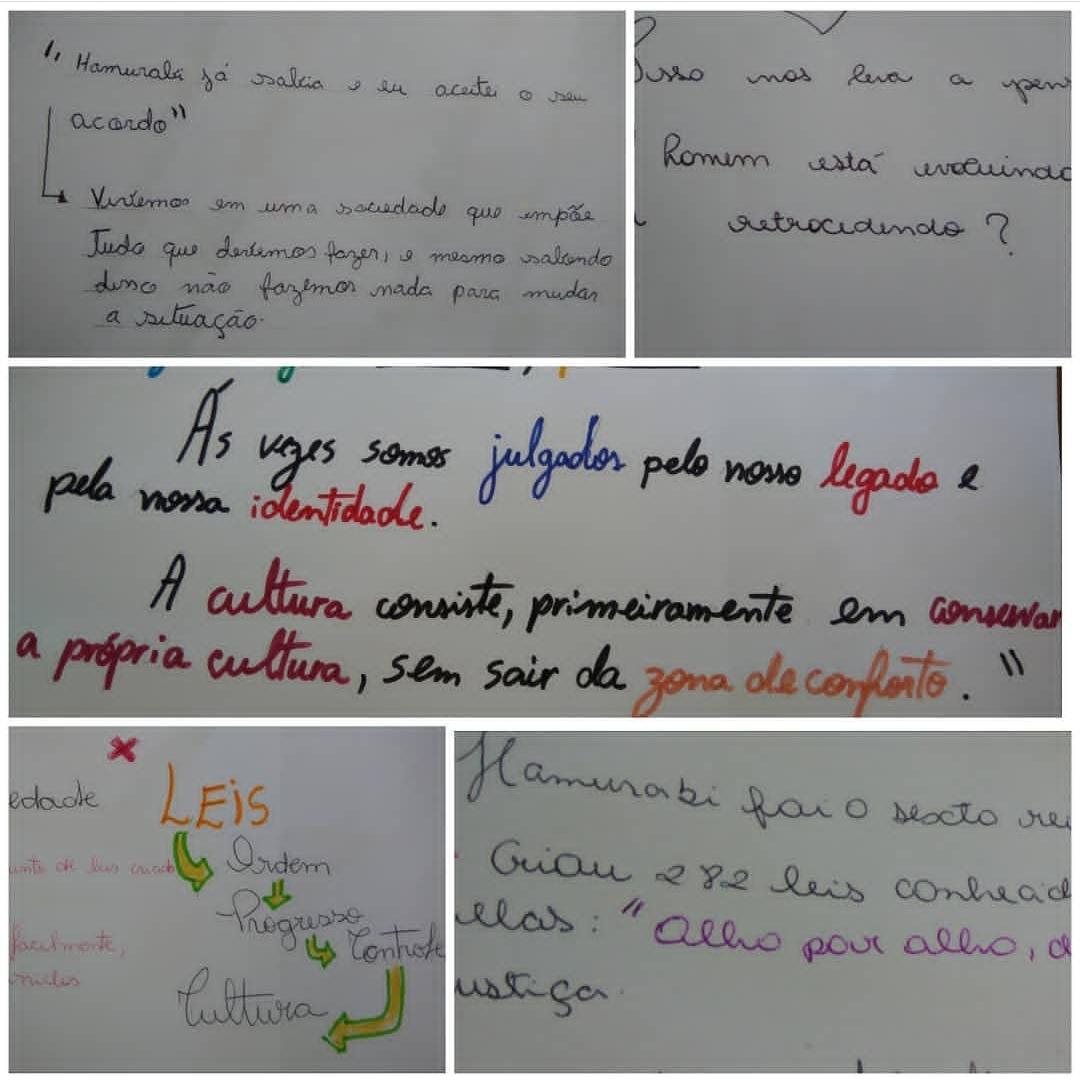 "Hamurabi já sabia e eu aceitei o seu
acordo"
Vivemos em uma sociedade que impõe
Tudo que devemos fazer, e mesmo sabendo
disso não fazemos nada para mudar
a situação.
Isso nos leva a pen
homem está evoluindo
retrocedendo?
Ás vezes somos julgados pelo nosso legado e
pela nossa identidade.
A cultura consiste, primeiramente em conservar
a própria cultura, sem sair da zona de conforto."
edade
LEIS
unto de leis criad
Ordem
Progresso
facilmente,
Controle
Cultura
Hamurabi foi o sexto rei
Criou 282 leis conhecid
elas: "Olho por olho, d
ustiça.